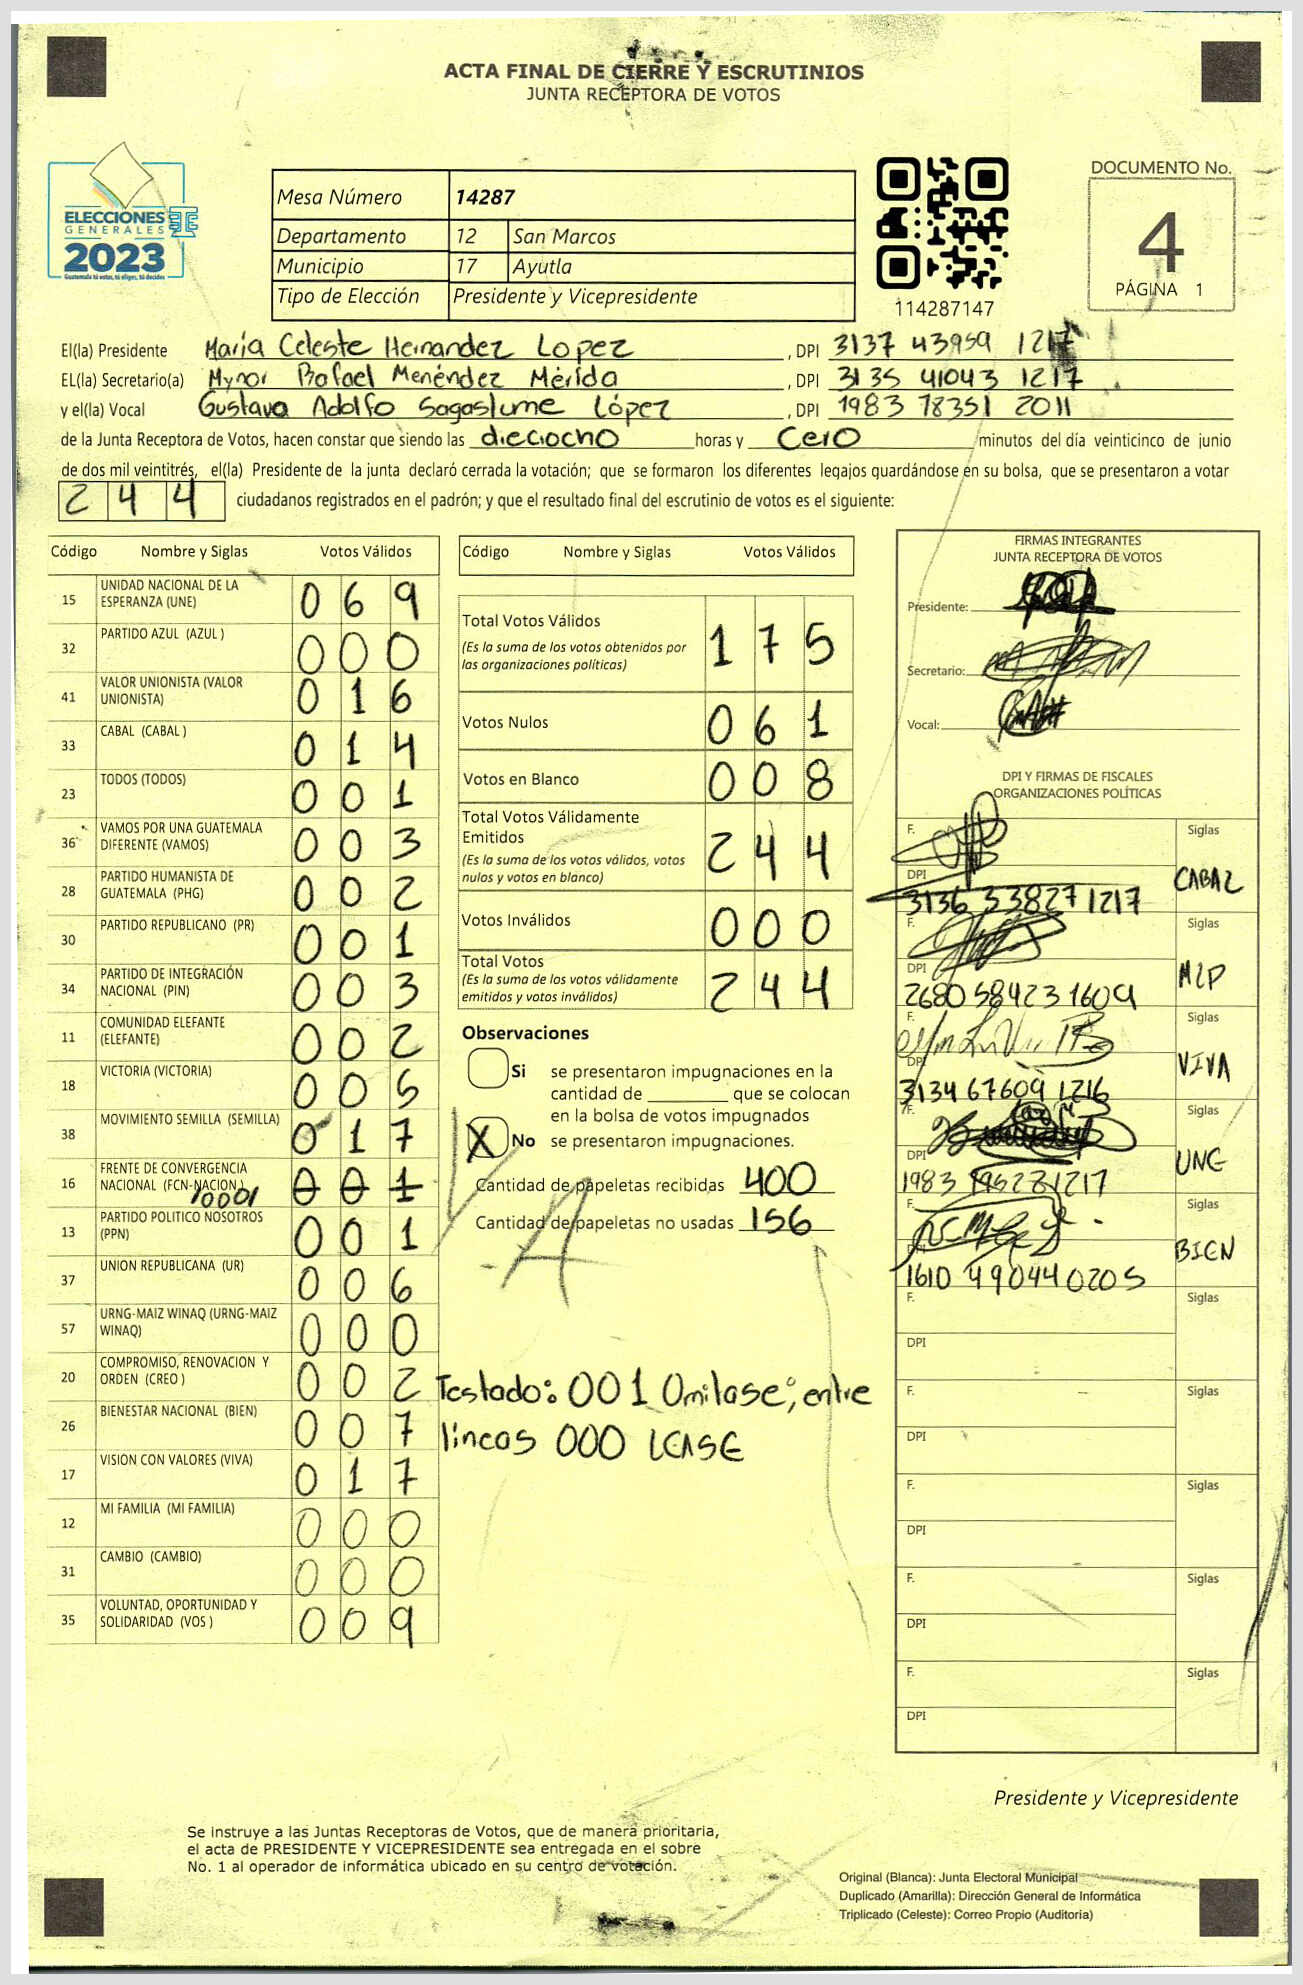 ACTA FINAL DE CIERRE Y ESCRUTINIOS
JUNTA RECEPTORA DE VOTOS
ELECCIONES
GENERALES
2023
Guatemala tú votas, tú eliges, tú decides
Mesa Número 14287
Departamento 12 San Marcos
Municipio 17 Ayutla
Tipo de Elección Presidente y Vicepresidente
114287147
DOCUMENTO No.
4
PÁGINA 1
El(la) Presidente María Celeste Hernandez Lopez , DPI 3137 43959 1217
EL(la) Secretario(a) Mynor Rafael Menéndez Mérida , DPI 3135 41043 1217
y el(la) Vocal Gustavo Adolfo Sagastume López , DPI 1983 78351 2011
de la Junta Receptora de Votos, hacen constar que siendo las dieciocho horas y Cero minutos del día veinticinco de junio
de dos mil veintitrés, el(la) Presidente de la junta declaró cerrada la votación; que se formaron los diferentes legajos guardándose en su bolsa, que se presentaron a votar
244 ciudadanos registrados en el padrón; y que el resultado final del escrutinio de votos es el siguiente:
Código Nombre y Siglas Votos Válidos
15 UNIDAD NACIONAL DE LA ESPERANZA (UNE) 069
32 PARTIDO AZUL (AZUL ) 000
41 VALOR UNIONISTA (VALOR UNIONISTA) 016
33 CABAL (CABAL ) 014
23 TODOS (TODOS) 001
36 VAMOS POR UNA GUATEMALA DIFERENTE (VAMOS) 003
28 PARTIDO HUMANISTA DE GUATEMALA (PHG) 002
30 PARTIDO REPUBLICANO (PR) 001
34 PARTIDO DE INTEGRACIÓN NACIONAL (PIN) 003
11 COMUNIDAD ELEFANTE (ELEFANTE) 002
18 VICTORIA (VICTORIA) 005
38 MOVIMIENTO SEMILLA (SEMILLA) 017
16 FRENTE DE CONVERGENCIA NACIONAL (FCN-NACION) 001
13 PARTIDO POLITICO NOSOTROS (PPN) 001
37 UNION REPUBLICANA (UR) 006
57 URNG-MAIZ WINAQ (URNG-MAIZ WINAQ) 000
20 COMPROMISO, RENOVACION Y ORDEN (CREO ) 002
26 BIENESTAR NACIONAL (BIEN) 007
17 VISION CON VALORES (VIVA) 017
12 MI FAMILIA (MI FAMILIA) 000
31 CAMBIO (CAMBIO) 000
35 VOLUNTAD, OPORTUNIDAD Y SOLIDARIDAD (VOS ) 009
Código Nombre y Siglas Votos Válidos
Total Votos Válidos 175
(Es la suma de los votos obtenidos por
las organizaciones políticas)
Votos Nulos 061
Votos en Blanco 008
Total Votos Válidamente
Emitidos 244
(Es la suma de los votos válidos, votos
nulos y votos en blanco)
Votos Inválidos 000
Total Votos 244
(Es la suma de los votos válidamente
emitidos y votos inválidos)
Observaciones
Si se presentaron impugnaciones en la
cantidad de ________ que se colocan
en la bolsa de votos impugnados
X No se presentaron impugnaciones.
Cantidad de papeletas recibidas 400
Cantidad de papeletas no usadas 156
Testado: 001 Omitase; entre
lineas 000 LEASE
FIRMAS INTEGRANTES
JUNTA RECEPTORA DE VOTOS
Presidente:
Secretario:
Vocal:
DPI Y FIRMAS DE FISCALES
ORGANIZACIONES POLÍTICAS
F. Siglas
DPI 3136 33827 1217 CABAL
F. Siglas
DPI 2680 58423 1609 MLP
F. Siglas
DPI 3134 67609 1216 VIVA
F. Siglas
DPI 1983 1217 UNE
F. Siglas
DPI 1610 49044 0205 BIEN
F. Siglas
DPI
F. Siglas
DPI
F. Siglas
DPI
F. Siglas
DPI
F. Siglas
DPI
Presidente y Vicepresidente
Se instruye a las Juntas Receptoras de Votos, que de manera prioritaria,
el acta de PRESIDENTE Y VICEPRESIDENTE sea entregada en el sobre
No. 1 al operador de informática ubicado en su centro de votación.
Original (Blanca): Junta Electoral Municipal
Duplicado (Amarilla): Dirección General de Informática
Triplicado (Celeste): Correo Propio (Auditoria)